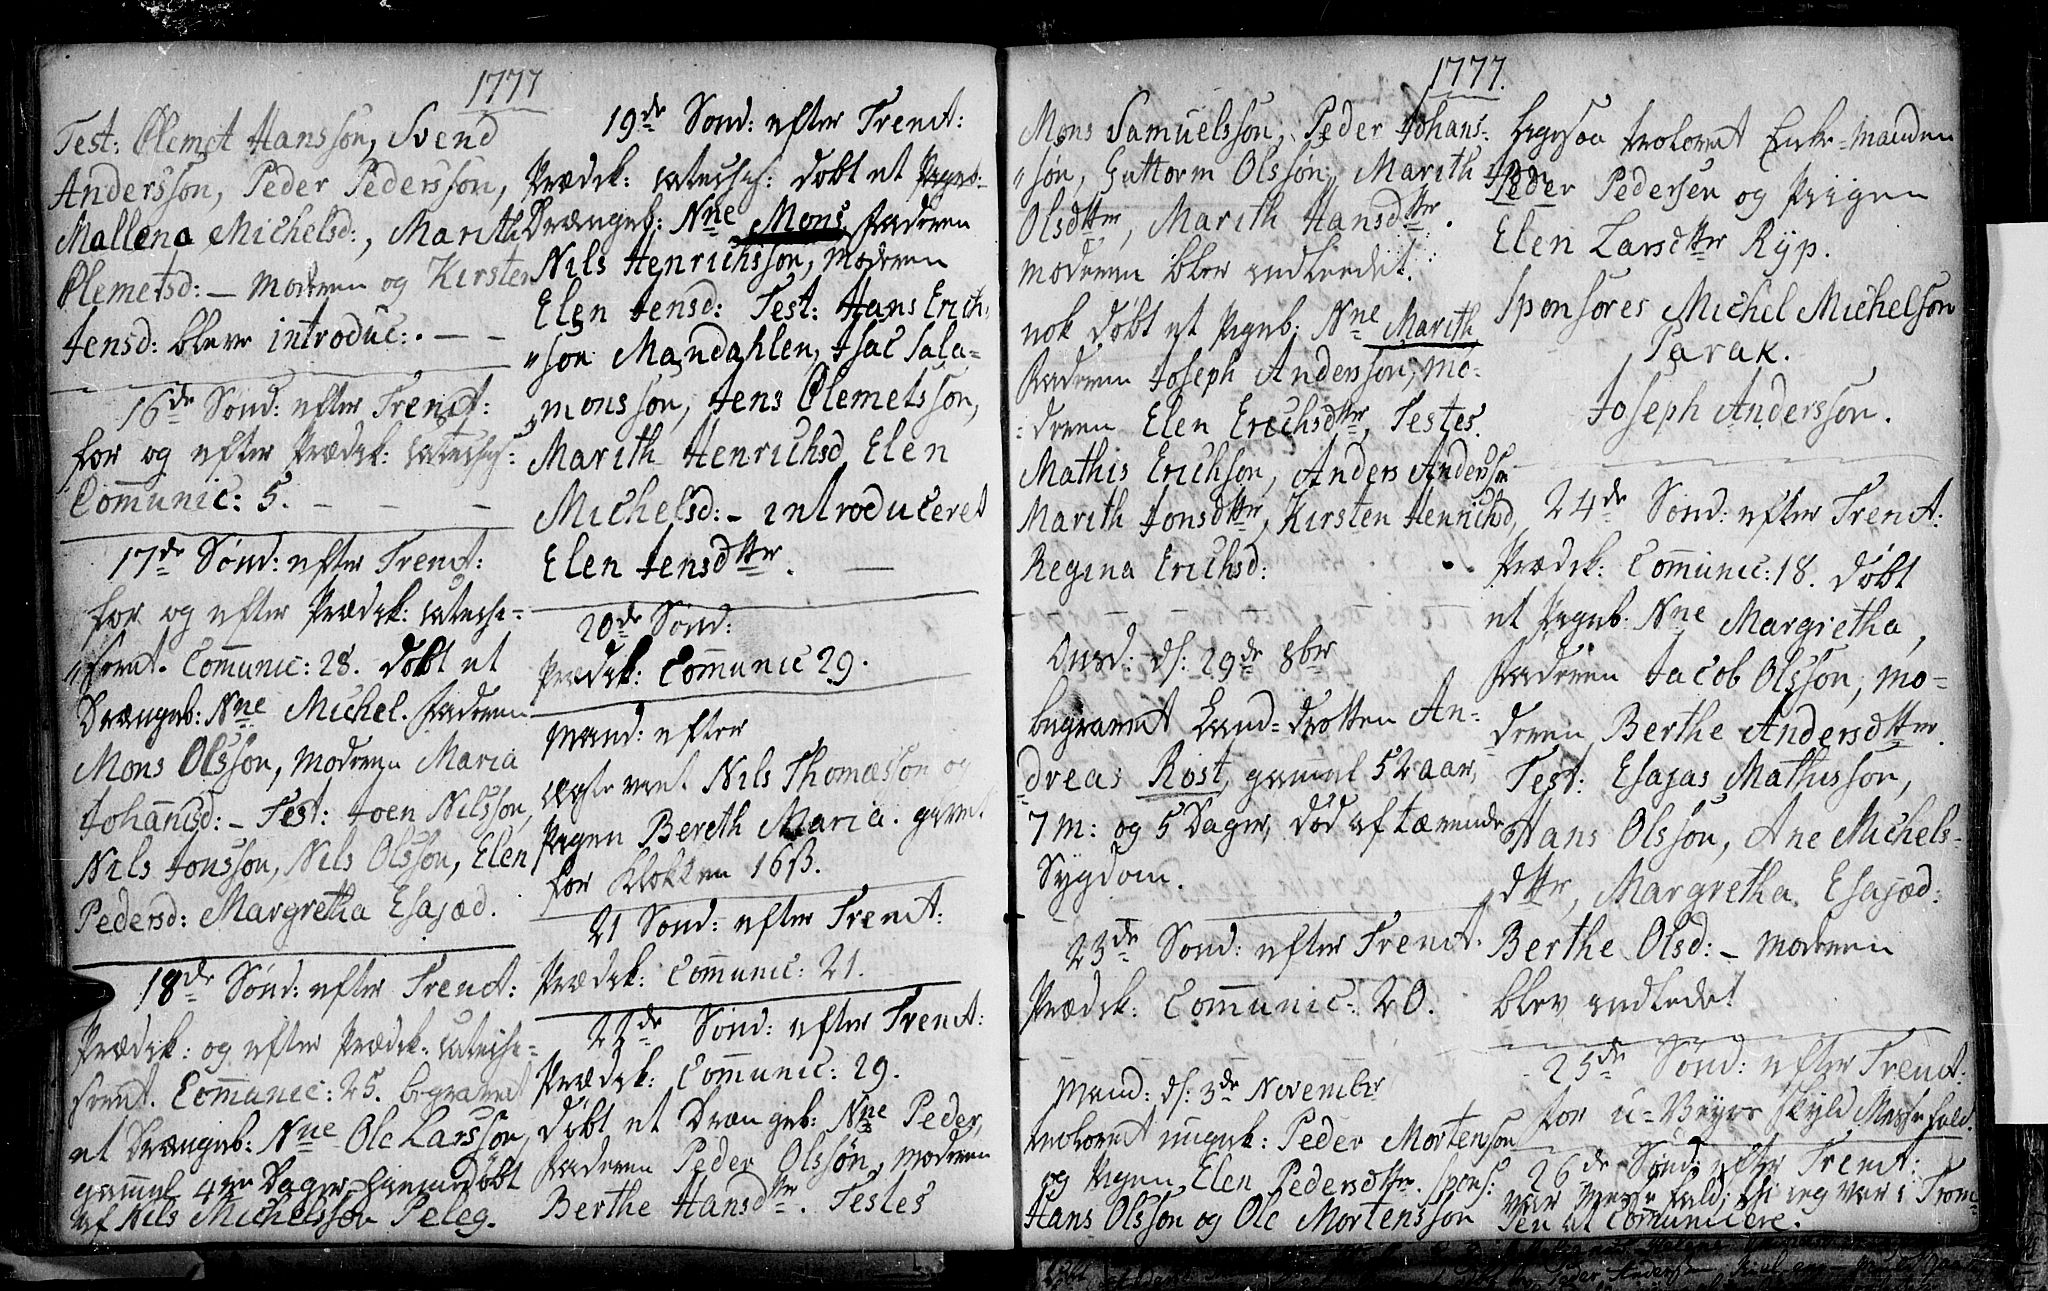 1777
Test: Clemet Hansson, Svend
Andersson, Peder Pedersson,
Mallena Michelsd:, Marith
Clemetsd: – Moderen og Kirsten
Jensd: bleve introduc:. – –
16de Sönd: efter Trenit:
for og efter Prædik: catechis:
Communic: 5. – – –
17de Sönd: efter Trenit:
for og efter Prædik: cateche-
seret. Communic: 28. döbt et
Drængeb: Nne Michel. Faderen
Mons Olsson, Moderen Maria
Johannsd: – Test: Joen Nilsson,
Nils Jonsson, Nils Olsson, Elen
Pedersd: Margretha Esajæd.
18de Sönd: efter Trenit:
Prædik: og efter Prædik: cateche-
seret. Communic: 25. begravet
et Drængeb: Nne Ole Larsson,
gammel 4re Dager, hjemmedöbt
af Nils Michelsson Peleg.
19de Sönd: efter Trenit:
Prædik: catechis: döbt et
Drængeb: Nne Mons Faderen
Nils Henrichsson, Moderen
Elen Jensd: Test: Hans Erich-
son Mandahlen, Isac Sala-
monsson, Jens Clemetsson,
Marith Henrichsd Elen
Michelsd: – introduceret
Elen Jensdtter. –
20de Sönd:
Prædik: Communic 29.
Mand: efter
Nils Thomæsson og
Pigen Bereth Maria. gavet
for Klokken 16 ß.
21 Sönd: efter Trenit:
Prædik: Communic: 21.
22de Sönd: efter Trenit:
Prædik: Communic: 29.
döbt et Drængeb: Nne Peder,
Faderen Peder Olssön, Moderen
Berthe Hansdtr. Testes
1777.
Mons Samuelsson, Peder Johans-
søn, Guttorm Olsson, Marith
Olsdtter, Marith Hansdtter.
Moderen blev indleedet.
nok döbt et Pigeb: Nne Marith
Faderen Joseph Andersson, Mo-
deren Elen Erichsdtter, Testes
Mathis Erichson, Anders Andersson
Marith Jonsdtter, Kirsten Henrichsd,
Regina Erichsd:
Onsd: d: 29de 8ber
begravet Land-Drotten An-
dreas Rost, gammel 52 aar,
7 M: og 5 Dager, död af tærende
Sygdom.
23de Sönd: efter Trenit.
Prædik: Communic: 20.
Mand: d: 3de November
troloret ungek: Peder Mortenson
og Pigen Elen Pedersdtter. Spons:
Hans Olsson og Ole Mortensson
Ligesaa troloret Enke-Manden
Peder Pedersen og Piigen
Elen Larsdtter Ryp.
Sponsores Michel Michelson
Parak.
Joseph Andersson.
24de Sönd: efter Trenit:
Prædik: Communic: 18. döbt
et Pigeb. Nne Margretha,
Faderen Jacob Olsson, Mo-
deren Berthe Andersdtter.
Test: Esajas Mathisson,
Hans Olsson, Ane Michels-
dtter, Margretha Esajæd:
Berthe Olsd: – Moderen
blev indledet
25de Sönd: efter Trenit:
for u-Veyrs Skyld Messefald.
26de Sönd: efter Trenit:
var Messefald, thi ieg var i Trom-
sen at Communicere.